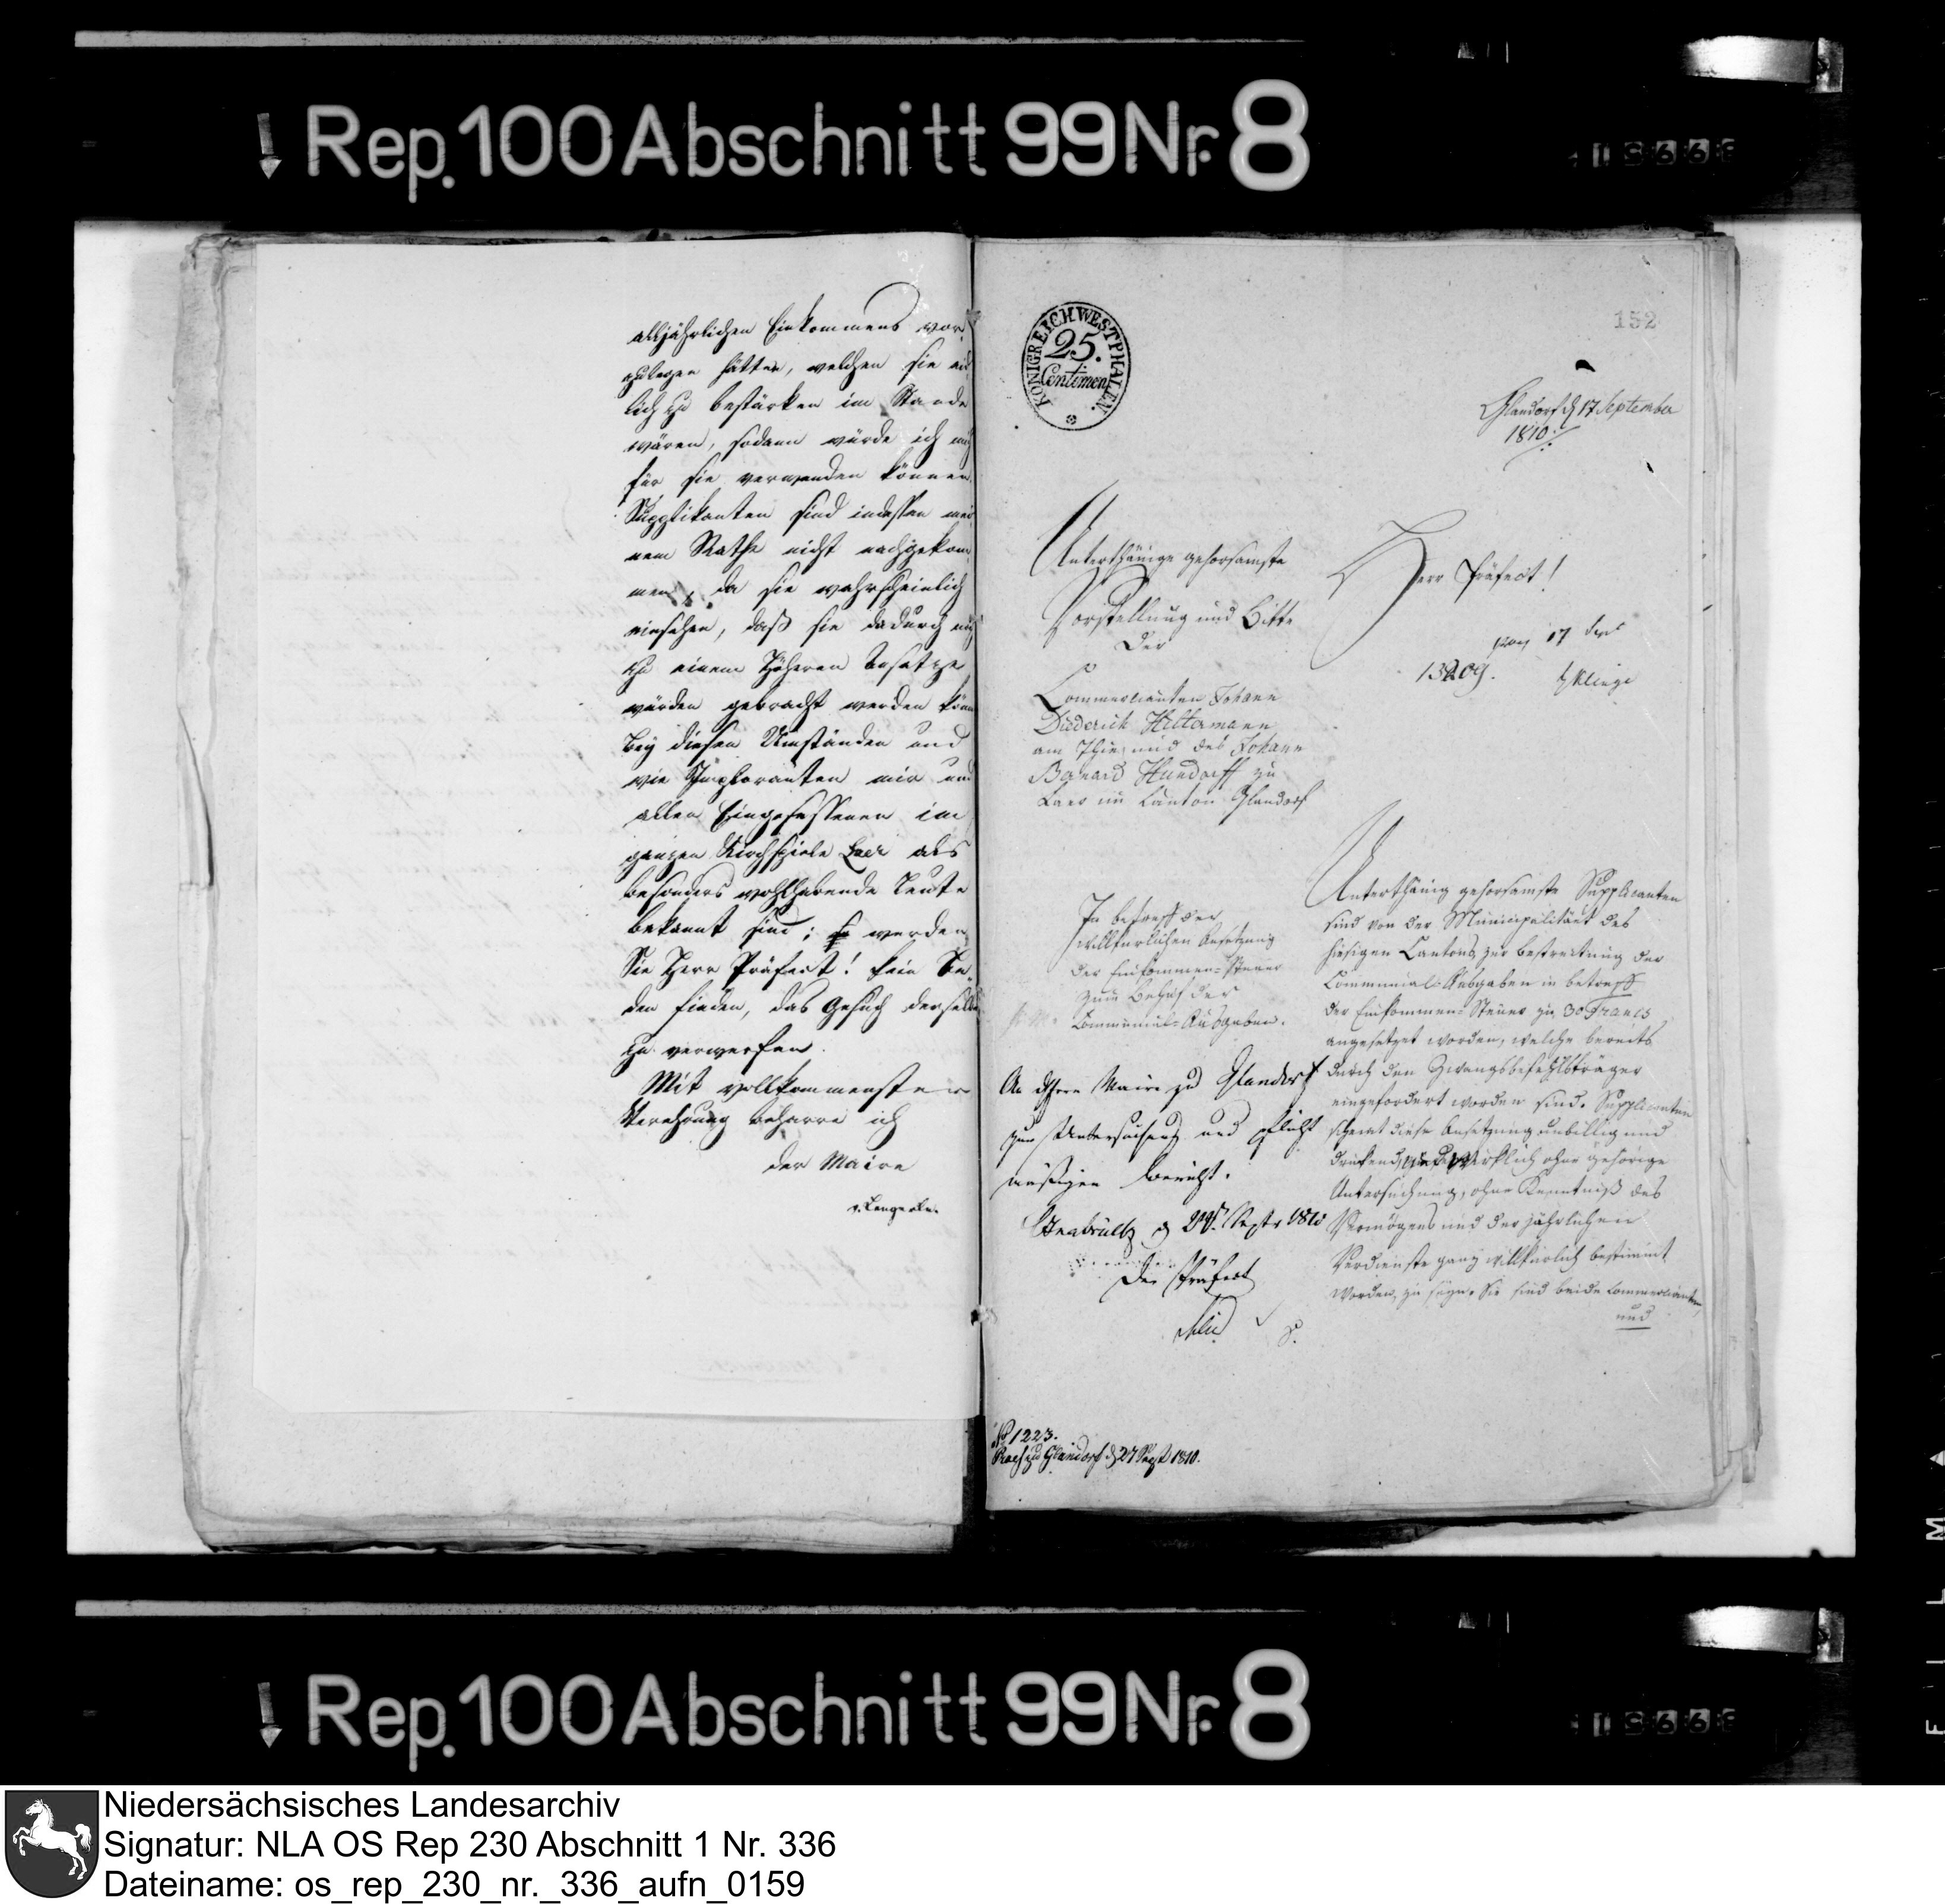 Rep. 100 Abschnitt 99 Nr. 8
alljährlichen Einkommens vor
zulegen hätten, welchen sie eid
lich zu bestärken im Stande
wären, sodann würde ich mich
für sie verwenden können.
Supplikanten sind indessen mei
nem Rathe nicht nachgekom
men, da sie wahrscheinlich
einsehen, daß sie dadurch
zu einem höheren Ansatze
würden gebracht werden könn
Bey diesen Umständen und
wie Imploranten mir und
allen Eingesessenen im
ganzen Kirchspiele Laer als
besonders wohlhabende Leute
bekannt sind; so werden
Sie Herr Präfect! kein Be¬
den finden, das Gesuch derselben
zu verwerfen.
Mit vollkommenster
Verehrung beharre ich
der Maire
KÖNIGREICH WESTPHALEN.
25.
Centimen
152
Glandorf d 17 September
1810.
Unterthänige gehorsamste
Vorstellung und Bitte
Der
Commercianten Johann
Diederich Hiltermann
am Thie und des Johann
Bernard Hundorff zu
Laer im Canton Glandorf
Herr Präfect!
17
13209.
In betreff der
willkürlichen Ansetzung
der Einkommen-Steuer
zum Behuf der
Communal-Ausgaben.
An Herrn Maire zu Glandorf
zur Untersuchung und pflicht
mäßigen Bericht.
Osnabrück d Septr 1810
Der Präfect
Unterthänig gehorsamste Supplicanten
sind von der Municipalitaet des
hiesigen Cantons zur bestreitung der
Communal-Ausgaben in betreff
der Einkommen-Steuer zu 30 Francs
angesetzet worden, welche bereits
durch den Zwangsbefehlsträger
eingefordert worden sind. Supplicanten
scheint diese Ansetzung unbillig und
drückend, und wirklich ohne gehörige
Untersuchung, ohne Kenntniß des
Vermögens und der jährlichen
Verdienste ganz willkürlich bestimmt
worden, zu seyn. Sie sind beide Commercianten,
und
No 1223.
Glandorf d 27 Sept 1810.
Rep. 100 Abschnitt 99 Nr. 8
Niedersächsisches Landesarchiv
Signatur: NLA OS Rep 230 Abschnitt 1 Nr. 336
Dateiname: os_rep_230_nr._336_aufn_0159